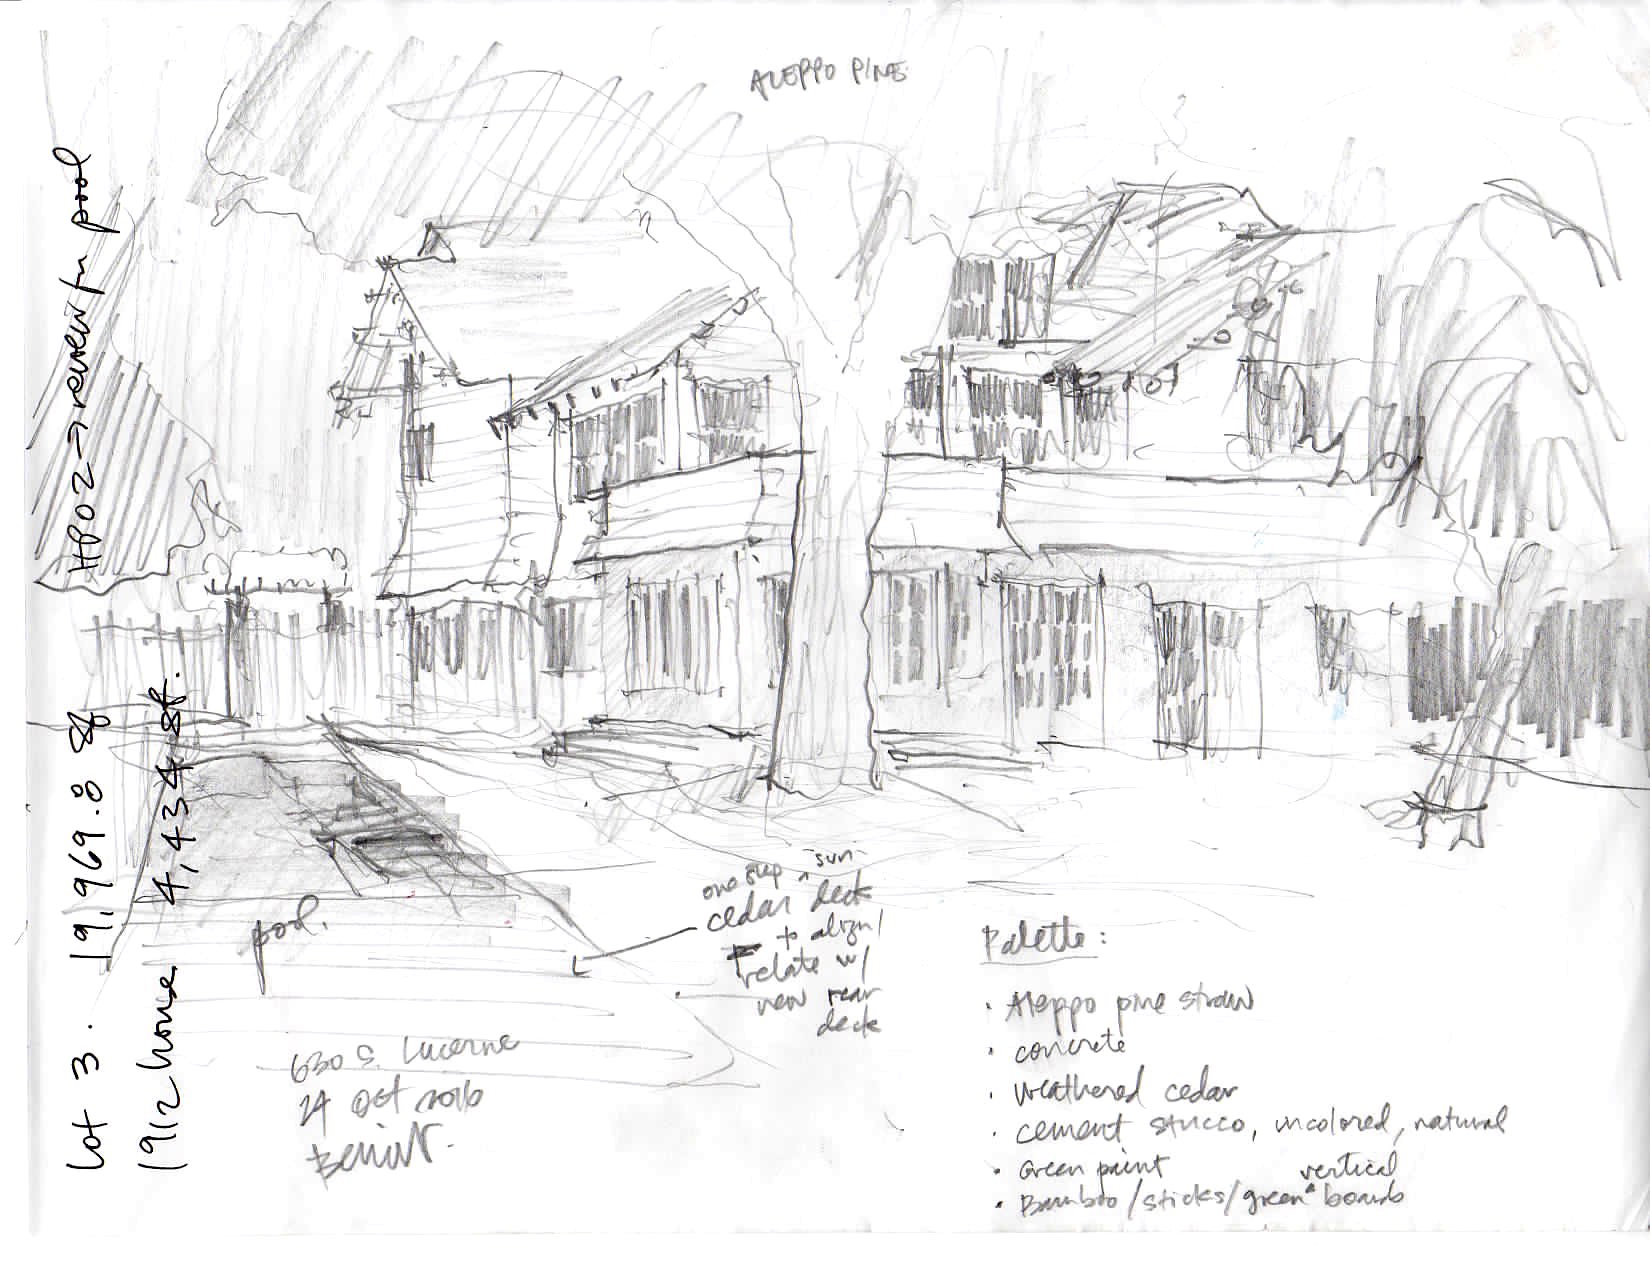 ALEPPO PINE
HPOZ → review for pool
Lot 3. 19,969.8 sf
1912 house 4,434 sf.
pool.
one step sun
cedar deck
to align/
relate w/
new rear
deck
630 S. Lucerne
24 Oct 2016
Palette:
• Aleppo pine straw
• concrete
• weathered cedar
• cement stucco, uncolored, natural
• Green paint
• Bamboo/sticks/green vertical boards